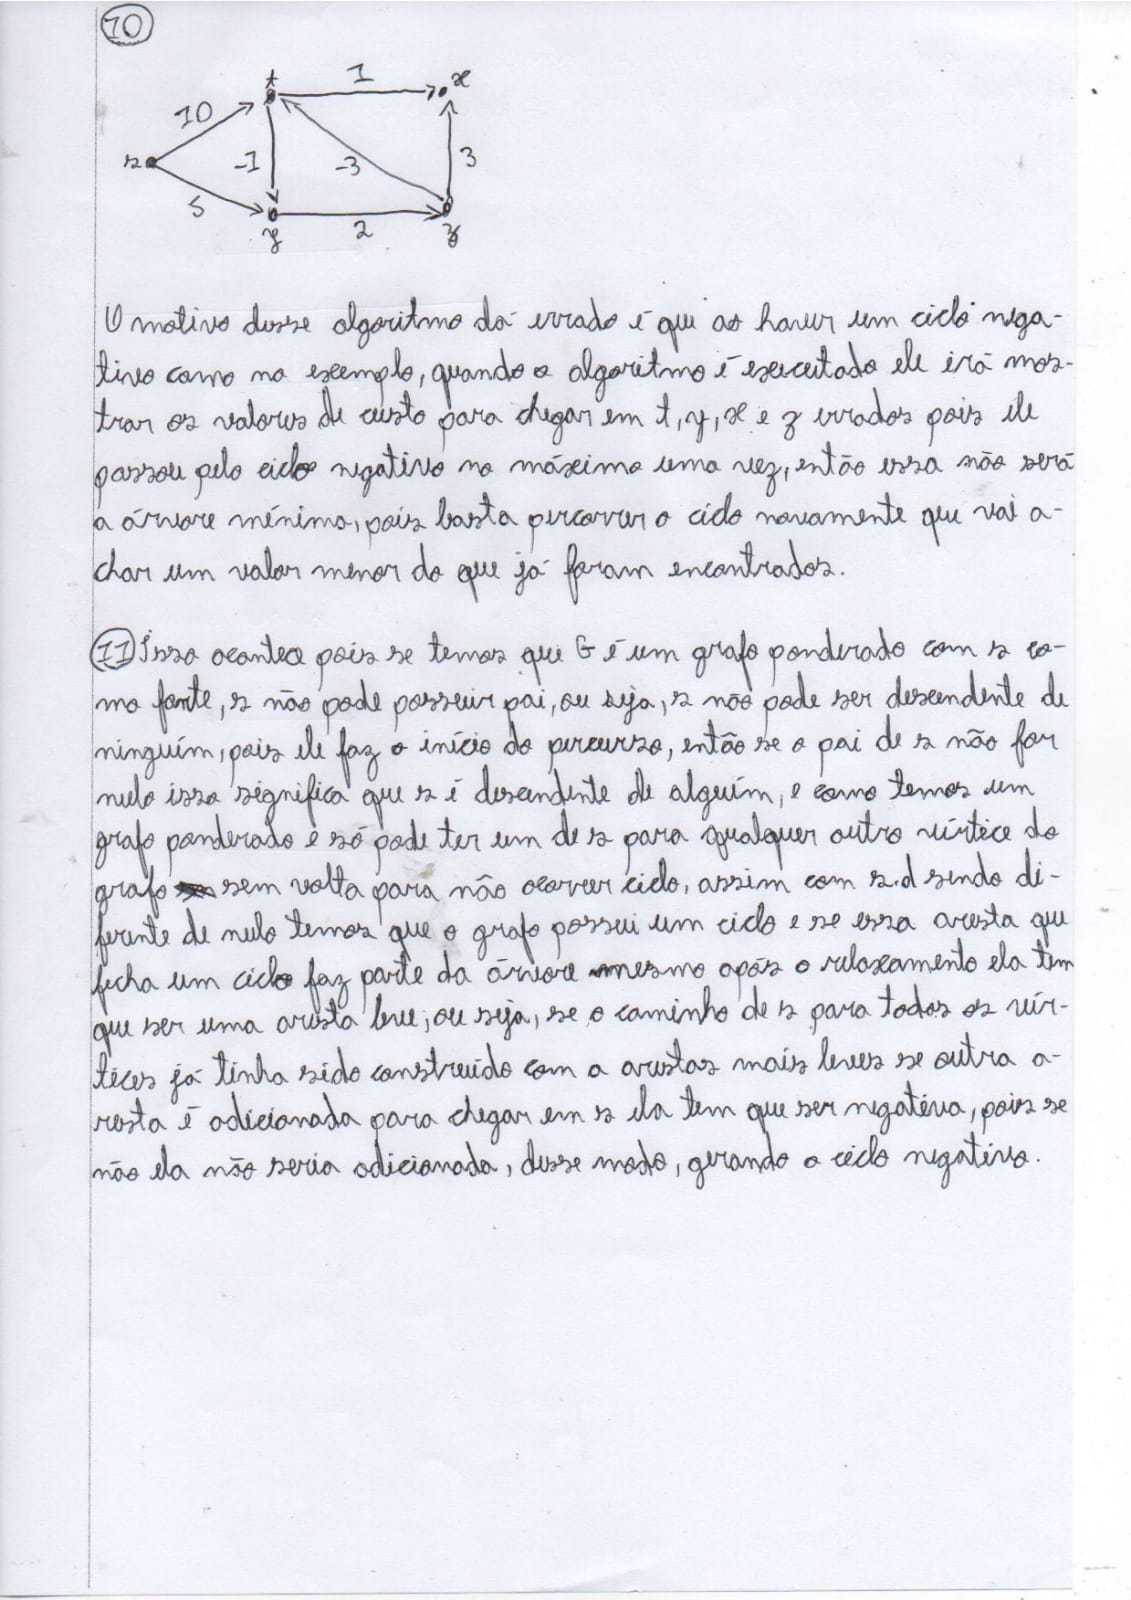 10
t 1 x
10
s -1 -3 3
5
y 2 z
O motivo desse algoritmo dá errado é que ao haver um ciclo nega-
tivo como no exemplo, quando o algoritmo é executado ele irá mos-
trar os valores de custo para chegar em t, y, x e z errados pois ele
passou pelo ciclo negativo no máximo uma vez, então essa não será
a árvore mínima, pois basta percorrer o ciclo novamente que vai a-
char um valor menor do que já foram encontrados.
11 Isso acontece pois se temos que G é um grafo ponderado com s co-
mo fonte, s não pode possuir pai, ou seja, s não pode ser descendente de
ninguém, pois ele faz o início do percurso, então se o pai de s não for
nulo isso significa que s é descendente de alguém, e como temos um
grafo ponderado e só pode ter um de s para qualquer outro vértice do
grafo sem volta para não ocorrer ciclo, assim com s.d sendo di-
ferente de nulo temos que o grafo possui um ciclo e se essa aresta que
fecha um ciclo faz parte da árvore mesmo após o relaxamento ela tem
que ser uma aresta leve, ou seja, se o caminho de s para todos os vér-
tices já tinha sido construído com a arestas mais leves se outra a-
resta é adicionada para chegar em s ela tem que ser negativa, pois se
não ela não seria adicionada, desse modo, gerando o ciclo negativo.